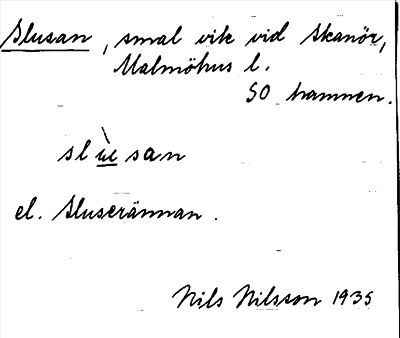 Slusan, smal vik vid Skanör,
Malmöhus l.
SO hamnen.
slùesan
el. Sluserännan.
Nils Nilsson 1935